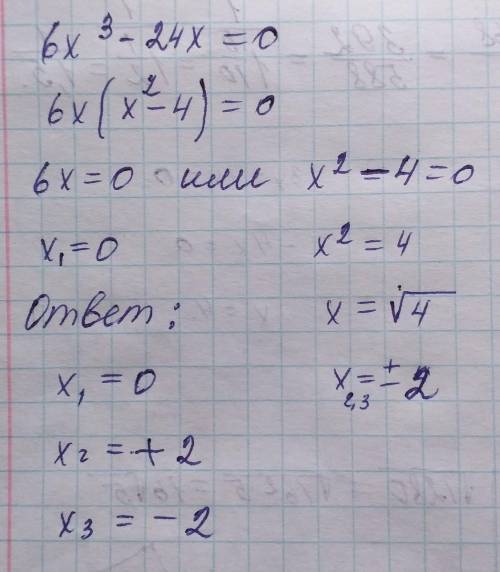 6x³ - 24x = 0
6x(x² - 4) = 0
6x = 0 или x² - 4 = 0
x₁ = 0 x² = 4
Ответ: x = √4
x₁ = 0 x₂,₃ = ± 2
x₂ = + 2
x₃ = - 2